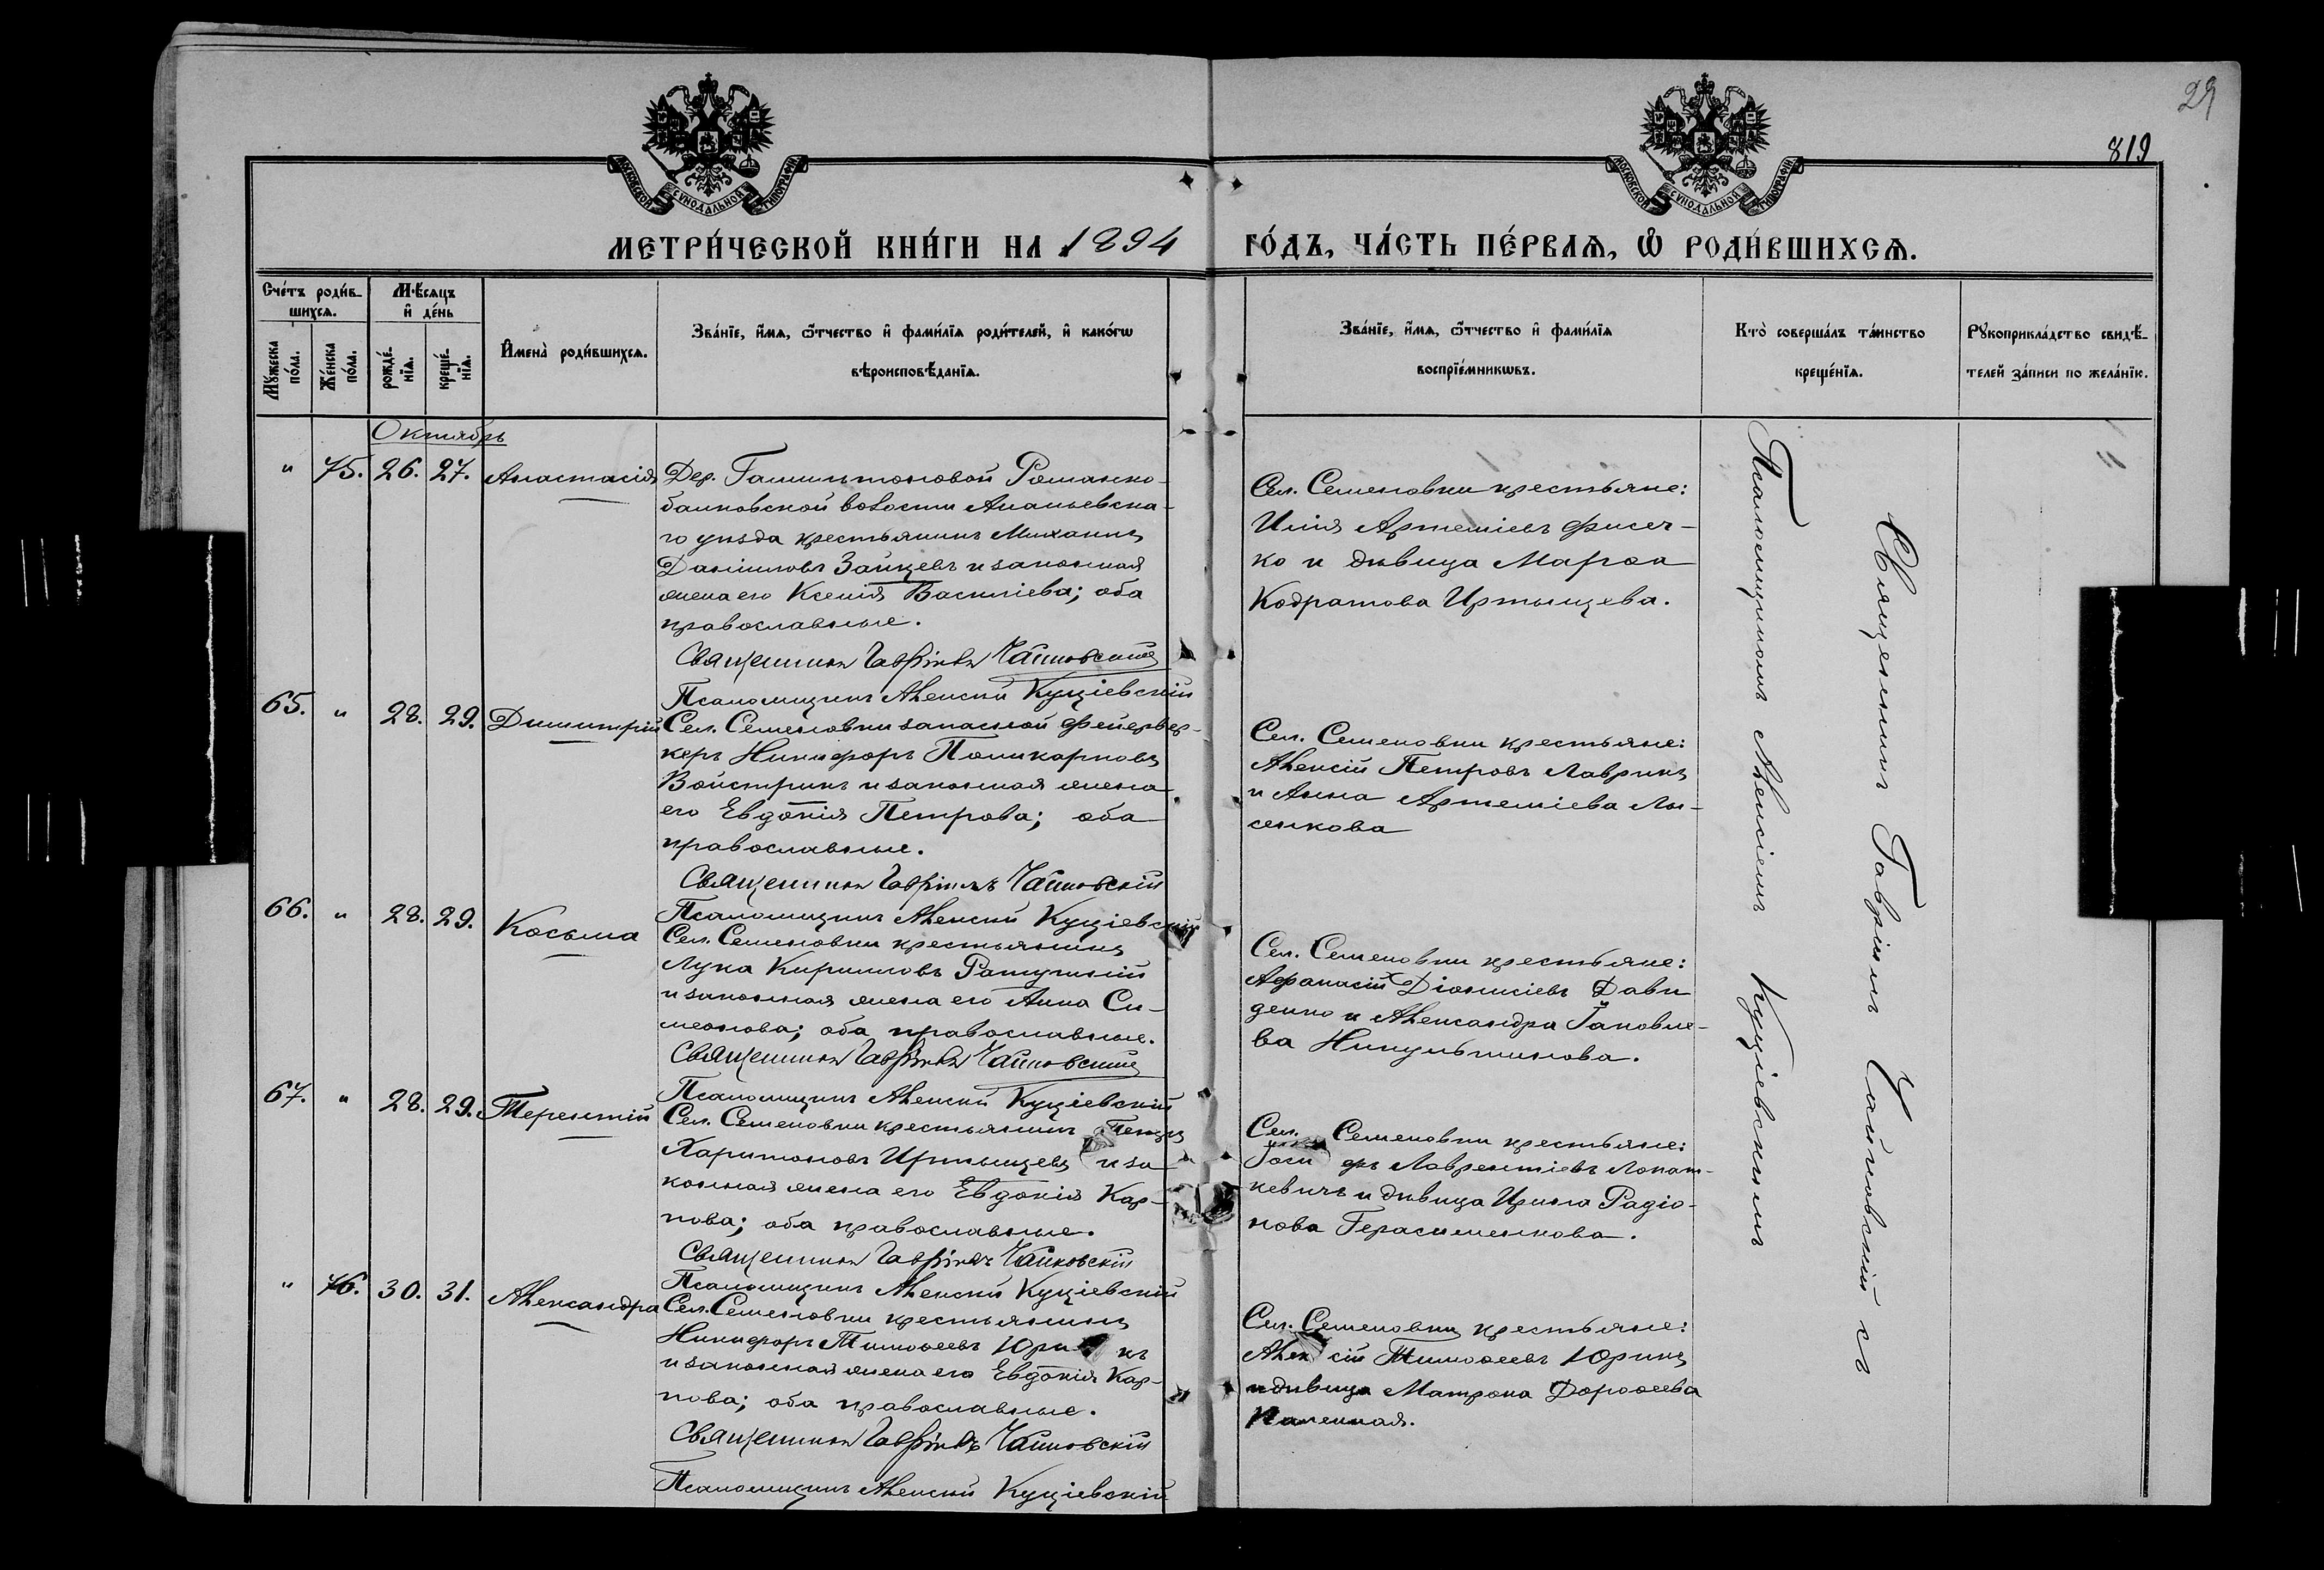 29
819
МОСКОВСКОЙ СѴНОДАЛЬНОЙ ТИПОГРАФІИ
МОСКОВСКОЙ СѴНОДАЛЬНОЙ ТИПОГРАФІИ
МЕТРИ́ЧЕСКОЙ КНИ́ГИ НА 1894 ГО́ДЪ, ЧА́СТЬ ПЕ́РВАѦ, Ѡ҆ РОДИ́ВШИХСѦ.
Сче́тъ роди́в-
шихсѧ.
Мꙋ́жеска
по́ла.
Же́нска
по́ла.
Мѣ́сѧцъ
и҆ де́нь
рожде́-
нїѧ.
креще́-
нїѧ.
И҆мена̀ роди́вшихсѧ.
Зва́нїе, и҆́мѧ, ѻ҆́тчество и҆ фами́лїѧ роди́телей, и҆ како́гѡ
вѣроисповѣ́данїѧ.
Зва́нїе, и҆́мѧ, ѻ҆́тчество и҆ фами́лїѧ
воспрїе́мникѡвъ.
Кто̀ соверша́лъ та́инство
креще́нїѧ.
Рꙋкоприкла́дство свидѣ́-
телей за́писи по жела́нїю.
Октябрь
" 75. 26. 27. Анастасія
Дер. Гамильтоновой Романко-
балковской волости Ананьевска-
го уѣзда крестьянинъ Михаилъ
Даніиловъ Зайцевъ и законная
жена его Ксенія Василіева; оба
православные.
Священникъ Гавріилъ Чайковскій
Псаломщикъ Алексѣй Куціевскій
Сел. Семеновки крестьяне:
Илія Артеміевъ Фисеч-
ко и дѣвица Марѳа
Кодратова Иртыщева.
65. " 28. 29. Димитрій
Сел. Семеновки запасной фейервер-
керъ Никифоръ Поликарповъ
Войстрикъ и законная жена
его Евдокія Петрова; оба
православные.
Священникъ Гавріилъ Чайковскій
Псаломщикъ Алексѣй Куціевскій
Сел. Семеновки крестьяне:
Алексій Петровъ Лаврикъ
и Анна Артеміева Лы-
сенкова
66. " 28. 29. Косьма
Сел. Семеновки крестьянинъ
Лука Кирилловъ Ратушній
и законная жена его Анна Си-
меонова; оба православные.
Священникъ Гавріилъ Чайковскій
Псаломщикъ Алексѣй Куціевскій
Сел. Семеновки крестьяне:
Афанасій Діонисіевъ Дави
денко и Александра Іаковле-
ва Никульшикова.
67. " 28. 29. Терентій
Сел. Семеновки крестьянинъ
Харитоновъ Иртыщевъ и за
конная жена его Евдокія Кар-
пова; оба православные.
Священникъ Гавріилъ Чайковскій
Псаломщикъ Алексѣй Куціевскій
Сел. Семеновки крестьяне:
Іоси фъ Лаврентіевъ Лопат-
кевичъ и дѣвица Ирина Радіо-
нова Герасименкова.
" 76. 30. 31. Александра
Сел. Семеновки крестьянинъ
Никифоръ Тимоѳеевъ Юри къ
и законная жена его Евдокія Кар-
пова; оба православные.
Священникъ Гавріилъ Чайковскій
Псаломщикъ Алексѣй Куціевскій
Сел. Семеновки крестьяне:
Алек сій Тимоѳеевъ Юрикъ
и дѣвица Матрона Дороѳеева
Священникъ Гавріилъ Чайковскій съ
Псаломщикомъ Алексіемъ Куціевскимъ